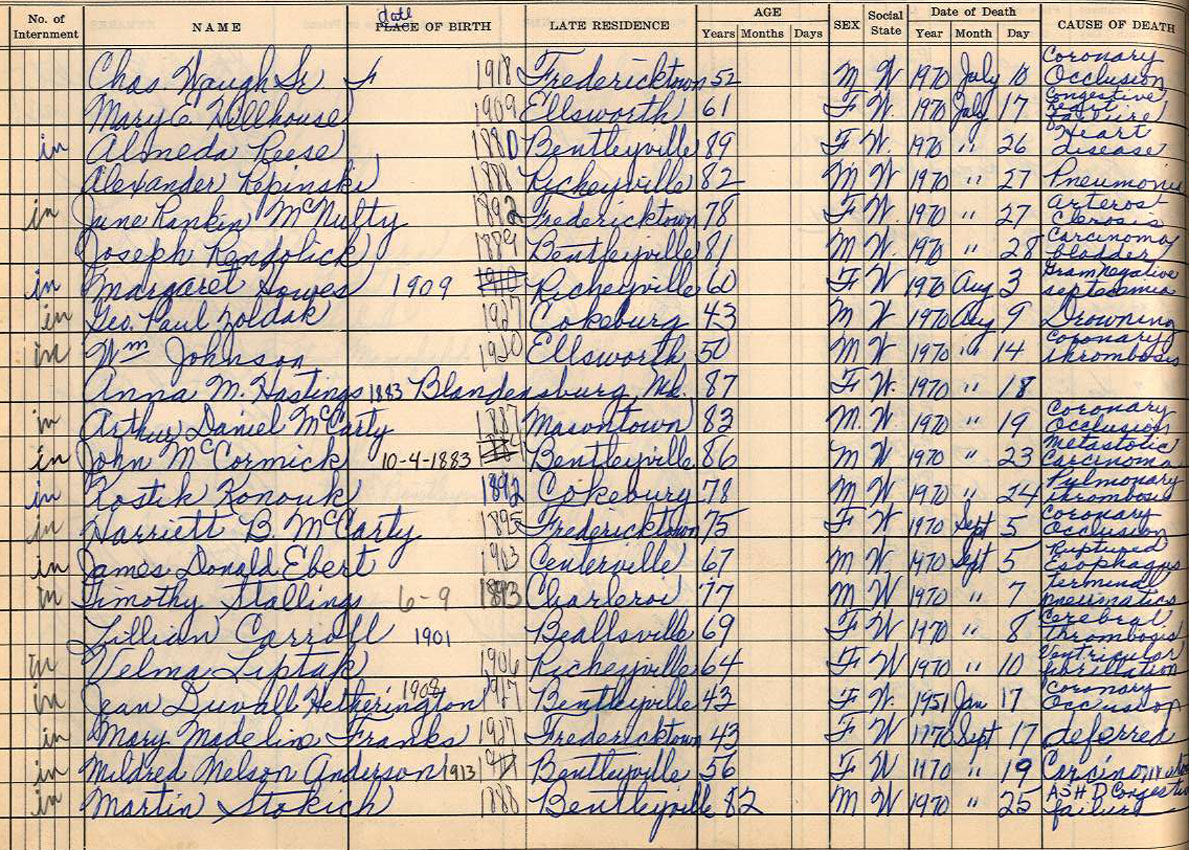 No. of Internment NAME date PLACE OF BIRTH LATE RESIDENCE AGE Years Months Days SEX Social State Date of Death Year Month Day CAUSE OF DEATH
Chas. Waugh Sr. 1918 Fredericktown 52 M W 1970 July 10 Coronary Occlusion
Mary C Hillhouse 1909 Ellsworth 61 F W. 1970 July 17 Congestive heart failure
in Almeda Reese 1880 Bentleyville 89 F W. 1970 " 26 Heart disease
Alexander Repinski 1888 Richeyville 82 M W 1970 " 27 Pneumonia
in June Rankin McNulty 1892 Fredericktown 78 F W 1970 " 27 Arteros Clerosis
Joseph Rendolick 1889 Bentleyville 81 M W. 1970 " 28 Carcinoma bladder
in Margaret Howes 1909 1910 Richeyville 60 F W 1970 Aug 3 Gram Negative septecmia
in Geo. Paul Zoldak 1927 Cokeburg 43 M W 1970 Aug 9 Drowning
in Wm Johnson 1920 Ellsworth 50 M W 1970 " 14 Coronary thrombosis
Anna M. Hastings 1883 Blandensburg, Md. 87 F W. 1970 " 18
in Arthur Daniel McCarty 1887 Masontown 83 M. W. 1970 " 19 Coronary Occlusion
in John McCormick 10-4-1883 Bentleyville 86 M W 1970 " 23 Metastotic Carcinoma
in Kostik Konouk 1892 Cokeburg 78 M W 1970 " 24 Pulmonary thrombosis
in Harriett B. McCarty 1895 Fredericktown 75 F W 1970 Sept 5 Coronary Occlusion
in James Donald Ebert 1903 Centerville 67 M W 1970 Sept 5 Ruptured Esophagus
in Timothy Stallings 6-9 1893 Charleroi 77 M W 1970 " 7 Terminal pneumatics
Lillian Carroll 1901 Beallsville 69 F W 1970 " 8 Cerebral thrombosis
in Velma Liptak 1906 Richeyville 64 F W 1970 " 10 Ventricular fibrillation
in Jean Duvall Hetherington 1908 1917 Bentleyville 43 F W. 1951 Jan 17 Coronary Occlusion
in Mary Madelin Franks 1927 Fredericktown 43 F W 1970 Sept 17 deferred
in Mildred Nelson Anderson 1913 Bentleyville 56 F W 1970 " 19
in Martin Stokich 1888 Bentleyville 82 M W 1970 " 25 ASHD Congestive failure